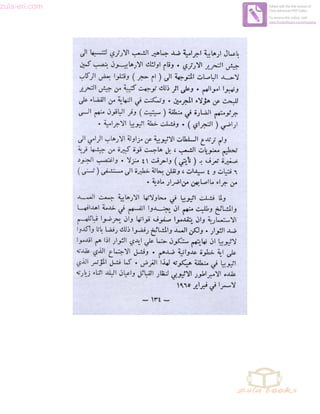 zula-eri.com
Edited with the trial version of
Foxit Advanced PDF Editor
To remove this notice, visit:
www.foxitsoftware.com/shopping
باعمال ارهابية اجرامية ضد جماهير الشعب الارتري لتنسبها الى
جيش التحرير الارتري . وقام اولئك الارهابيــون بنصب كمين
لاحــد الباصات المتوجهة الى ( ام حجر ) وقتلوا بعض الركاب
ونهبوا اموالهم . وعلى اثر ذلك توجهت كتيبة من جيش التحرير
للبحث عن هؤلاء المجرمين . وتمكنت في النهاية من القضاء على
جرثومتهم الضارة في منطقة ( سيتيت ) وفر الباقون منهم الــى
اراضي ( التجراي ) . وفشلت خطة اثيوبيا الاجرامية .
ولم ترتدع السلطات الاثيوبية عن مزاولة الارهاب الرامي الى
تحطيم معنويات الشعب ، بل هاجمت قوة كبيرة من جيشها قرية
صغيرة تعرف بـ ( تأيتي ) واحرقت ٤١ منزلا . واغتصب الجنود
٦ فتيات و ٤ سيدات ، ونقلن بحالة خطيرة الى مستشفى ( تسنى )
من جراء مااصابهن من اضرار مادية .
ولما فشلت اثيوبيا في محاولاتها الارهابية جمعت العمــد
والمشـايخ وطلبت منهم ان يجنــدوا انفسهم في خدمة اهدافهـا
الاستعمارية وان يتقدموا صفوف قواتها وان يحرضـوا قبائلهـم
ضد الثوار . ولكن العمد والمشايخ رفضوا ذلك رفضا باتا وأكدوا
لاثيوبيا ان نهايتهم ستكون حتما على ايدي الثوار اذا هم اقدموا
على اية خطوة عدوانية ضدهم . وفشل الاجتماع الذي عقدته
اثيوبيا في منطقة هيكوته لهذا الغرض . كمـا فشل المؤتمر الذي
عقده الامبراطور الاثيوبي لنظار القبائل واعيان البلد اثناء زيارته
لاسمرا في فبراير ١٩٦٥
— ١٣٤ —
zula books